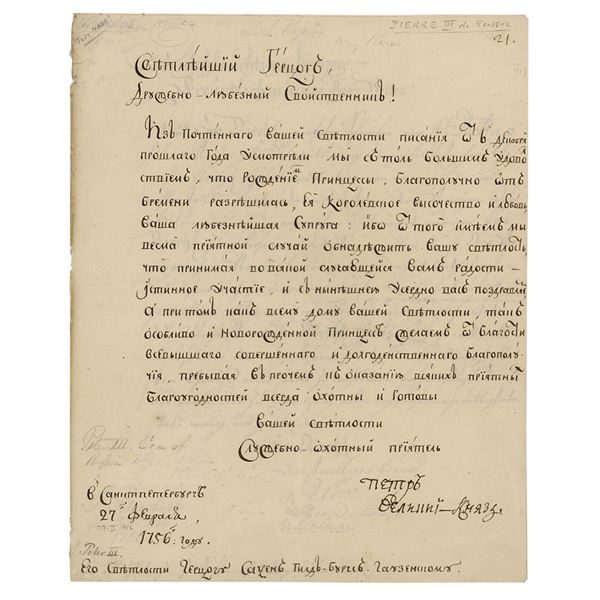 PIERRE III de Russie
21.
Свѣтлѣйшій Герцогъ,
Дружебно-любезный Свойственникъ!
Изъ Почтеннаго вашей Свѣтлости писанія ѿ 8 декабря
прошлаго Года Усмотрѣли мы съ толь большимъ удово
ствіемъ, что Рожденіемъ Принцессы, благополучно отъ
бремени разрѣшилась, Ея Королевское высочество и любовь
ваша любезнѣйшая Супруга: ибо ѿ того имѣемъ мы
весма пріятной случай обнадежить вашу свѣтлость
что принимая во всякой случающейся вамъ радости –
Истинное Участіе, и съ нынѣшнемъ Усердно васъ поздравляе
А при томъ какъ всему дому вашей Свѣтлости, такъ
особливо и новорожденной Принцессѣ желаемъ ѿ благости
всевышшаго совершеннаго и долгоденственнаго благополу-
чія, пребывая въ прочемъ къ оказанію всякихъ пріятны
благоугодностей всегда охотны и Готовы
вашей свѣтлости
Служебно-охотный пріятель
Петръ
Великій-Князь
в Санктпетербургѣ
27 Февраля
1756: году.
Peter III. Czar of
Peter III.
Его Свѣтлости Герцогу Саксенъ Гилдъ-Бургъ-Гаузенскому.